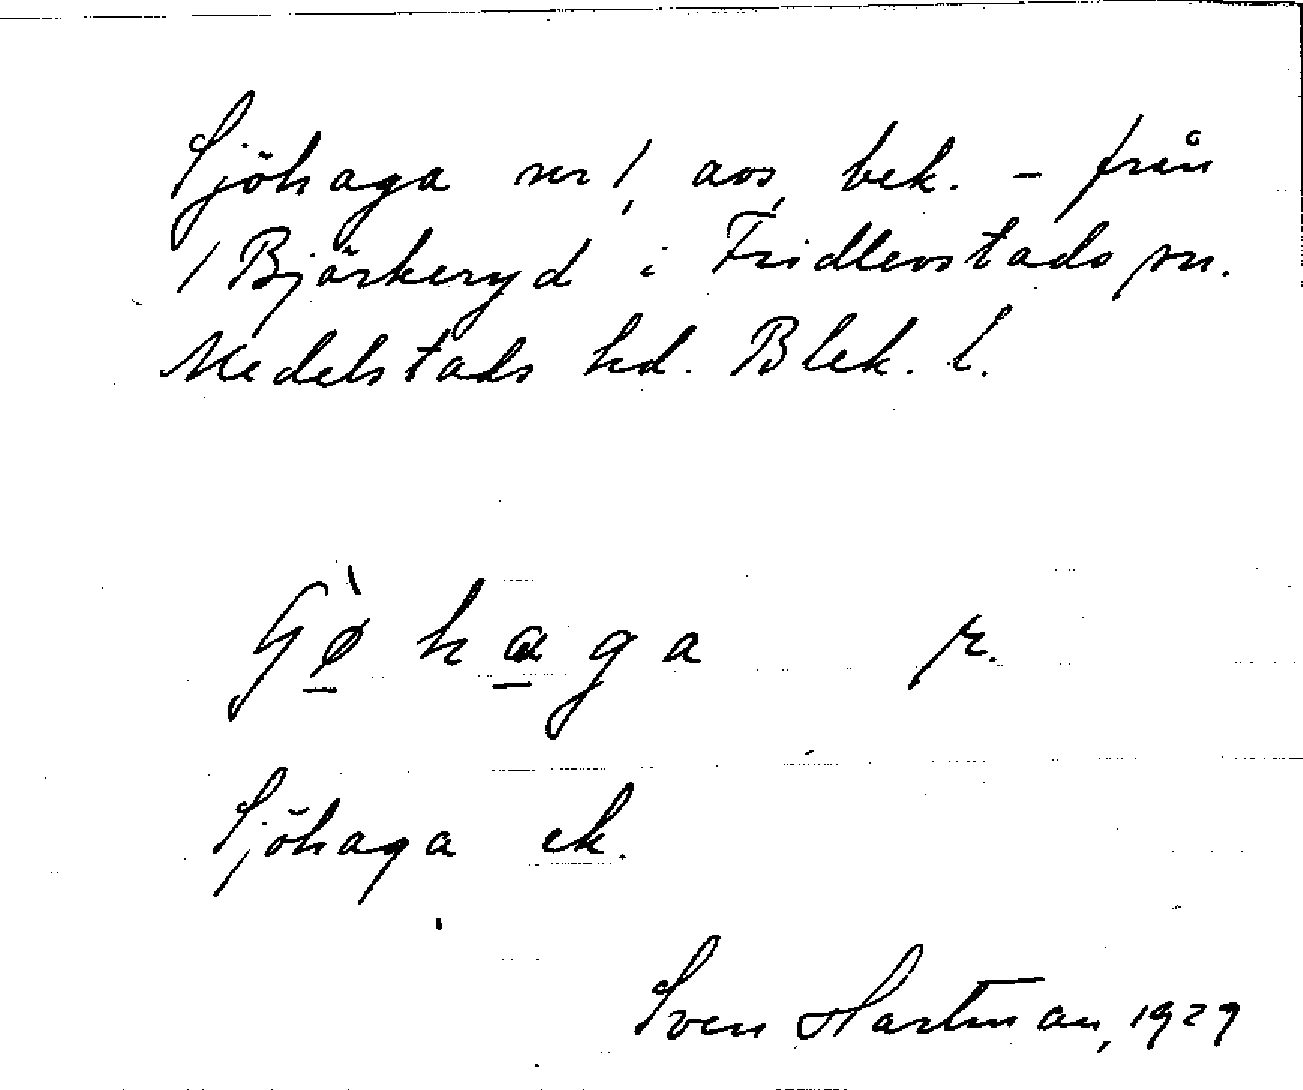 Sjöhaga nr 1, avs, bek. - från
1 Björkeryd i Fridlevstads sn.
Medelstads hd. Blek. l.
Sjöhaga ek.
Sven Hartman, 1929